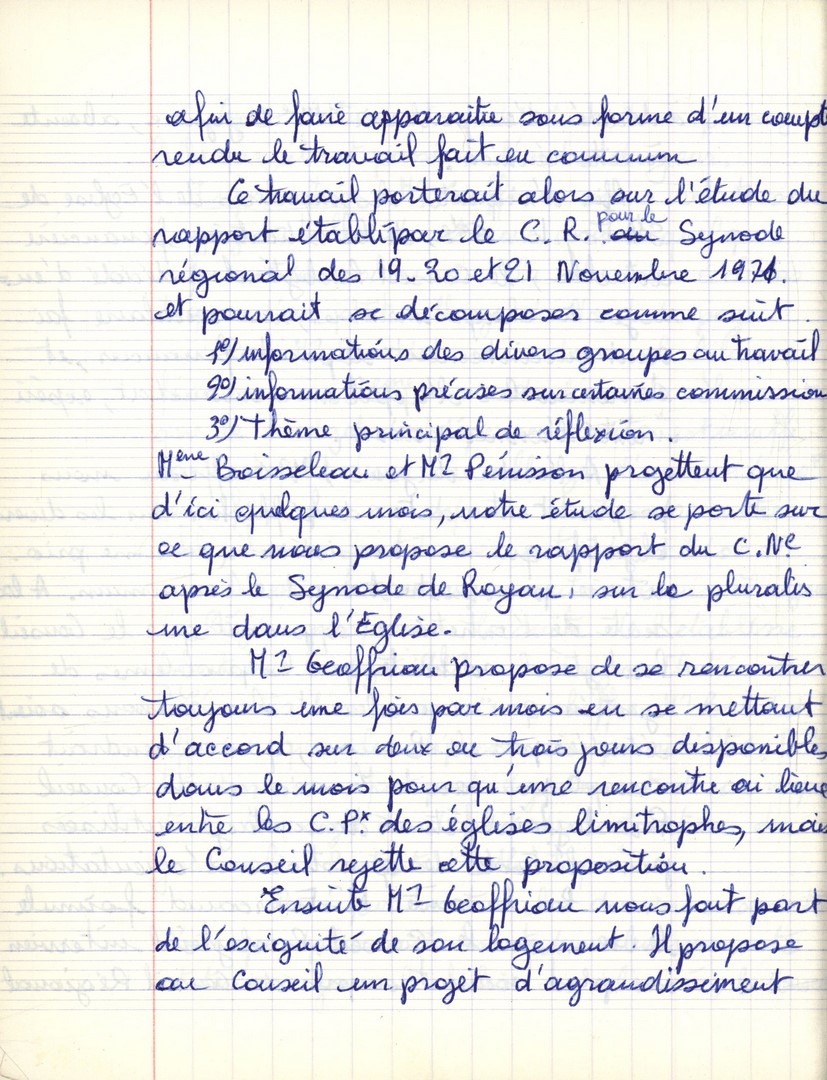 afin de faire apparaitre sous forme d'un compte
rendu le travail fait en commun
Ce travail porterait alors sur l'étude du
rapport établi par le C. R. pour le Synode
régional des 19-20 et 21 Novembre 1971.
et pourrait se décomposer comme suit.
1º) informations des divers groupes au travail
2º) informations précises sur certaines commission
3º) thème principal de réflexion.
Mme Boisseleau et Mr Pénisson projettent que
d'ici quelques mois, notre étude se porte sur
ce que nous propose le rapport du C. Nl
après le Synode de Royan, sur le pluralis
me dans l'Eglise.
Mr Geoffriau propose de se rencontrer
toujours une fois par mois en se mettant
d'accord sur deux ou trois jours disponibles
dans le mois pour qu'une rencontre ai lieu
entre les C. Px des églises limitrophes, mais
le Conseil rejette cette proposition.
Ensuite Mr Geoffriau nous fait part
de l'exiguité de son logement. Il propose
au Conseil un projet d'agrandissement